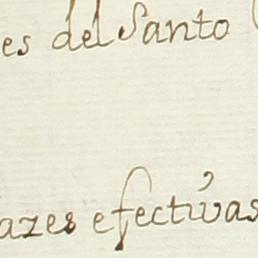 es del Santo
azes efectivas